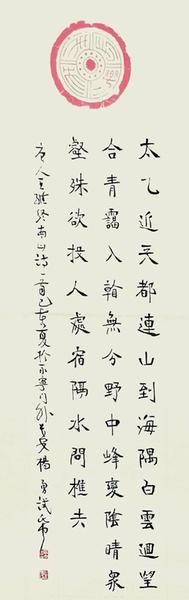 太乙近天都連山到海隅白雲迴望
合青靄入看無分野中峰變陰晴衆
壑殊欲投人處宿隔水問樵夫
唐人王維終南山詩一首